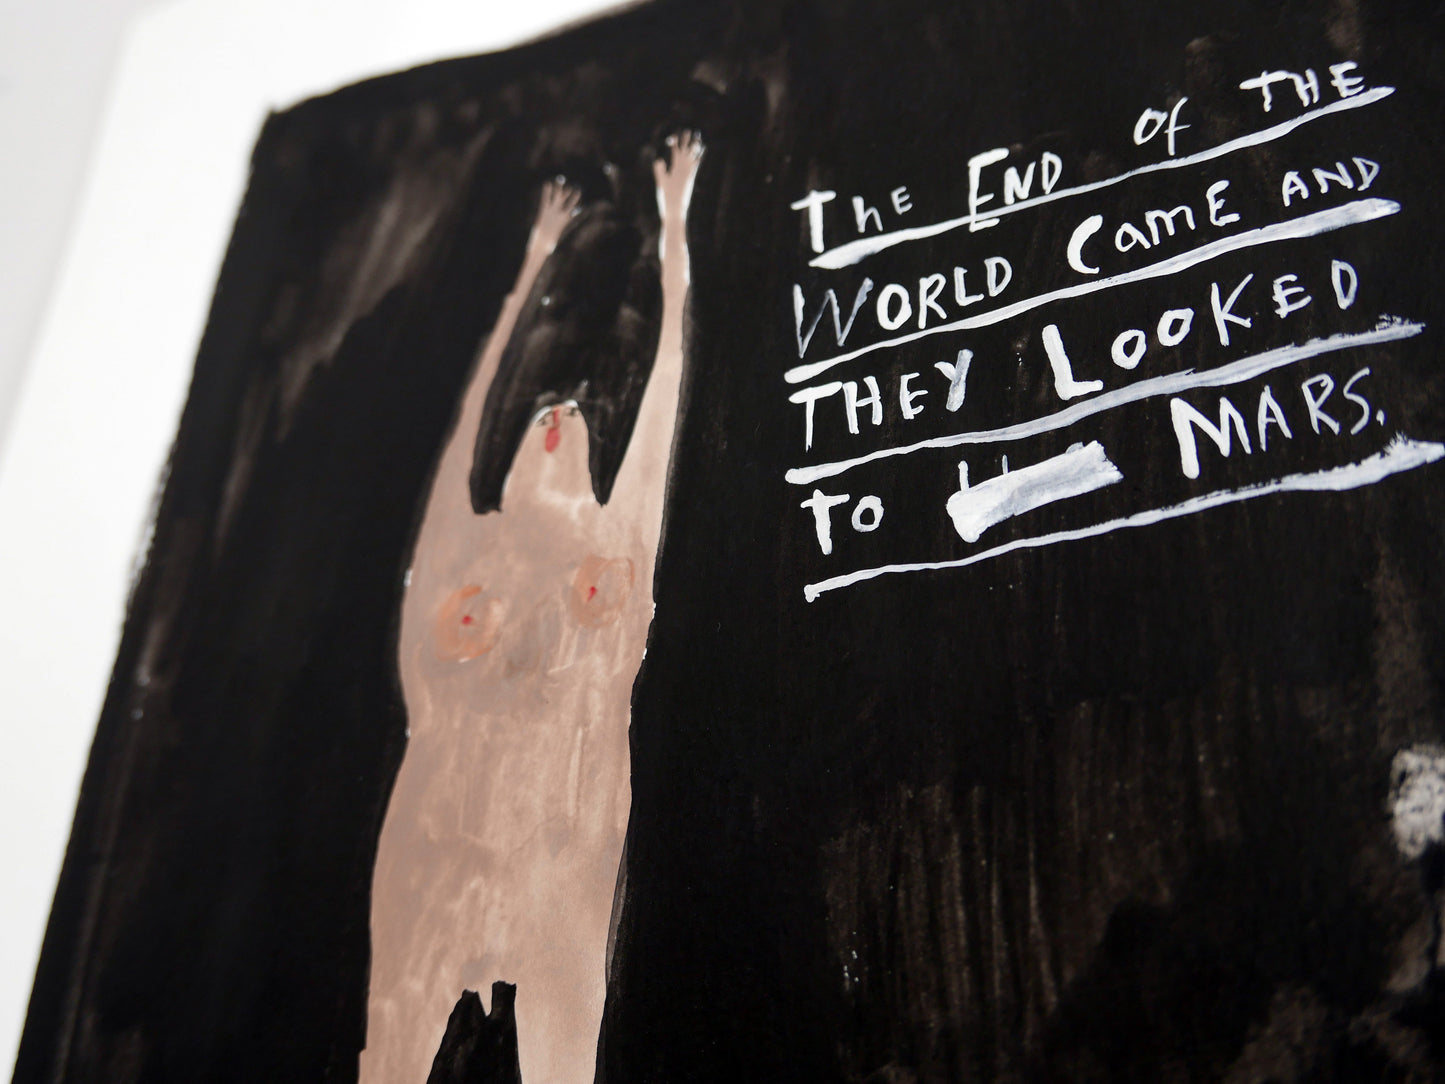 The END Of THE
WORLD CamE AND
THEY LOOKED
To MARS.